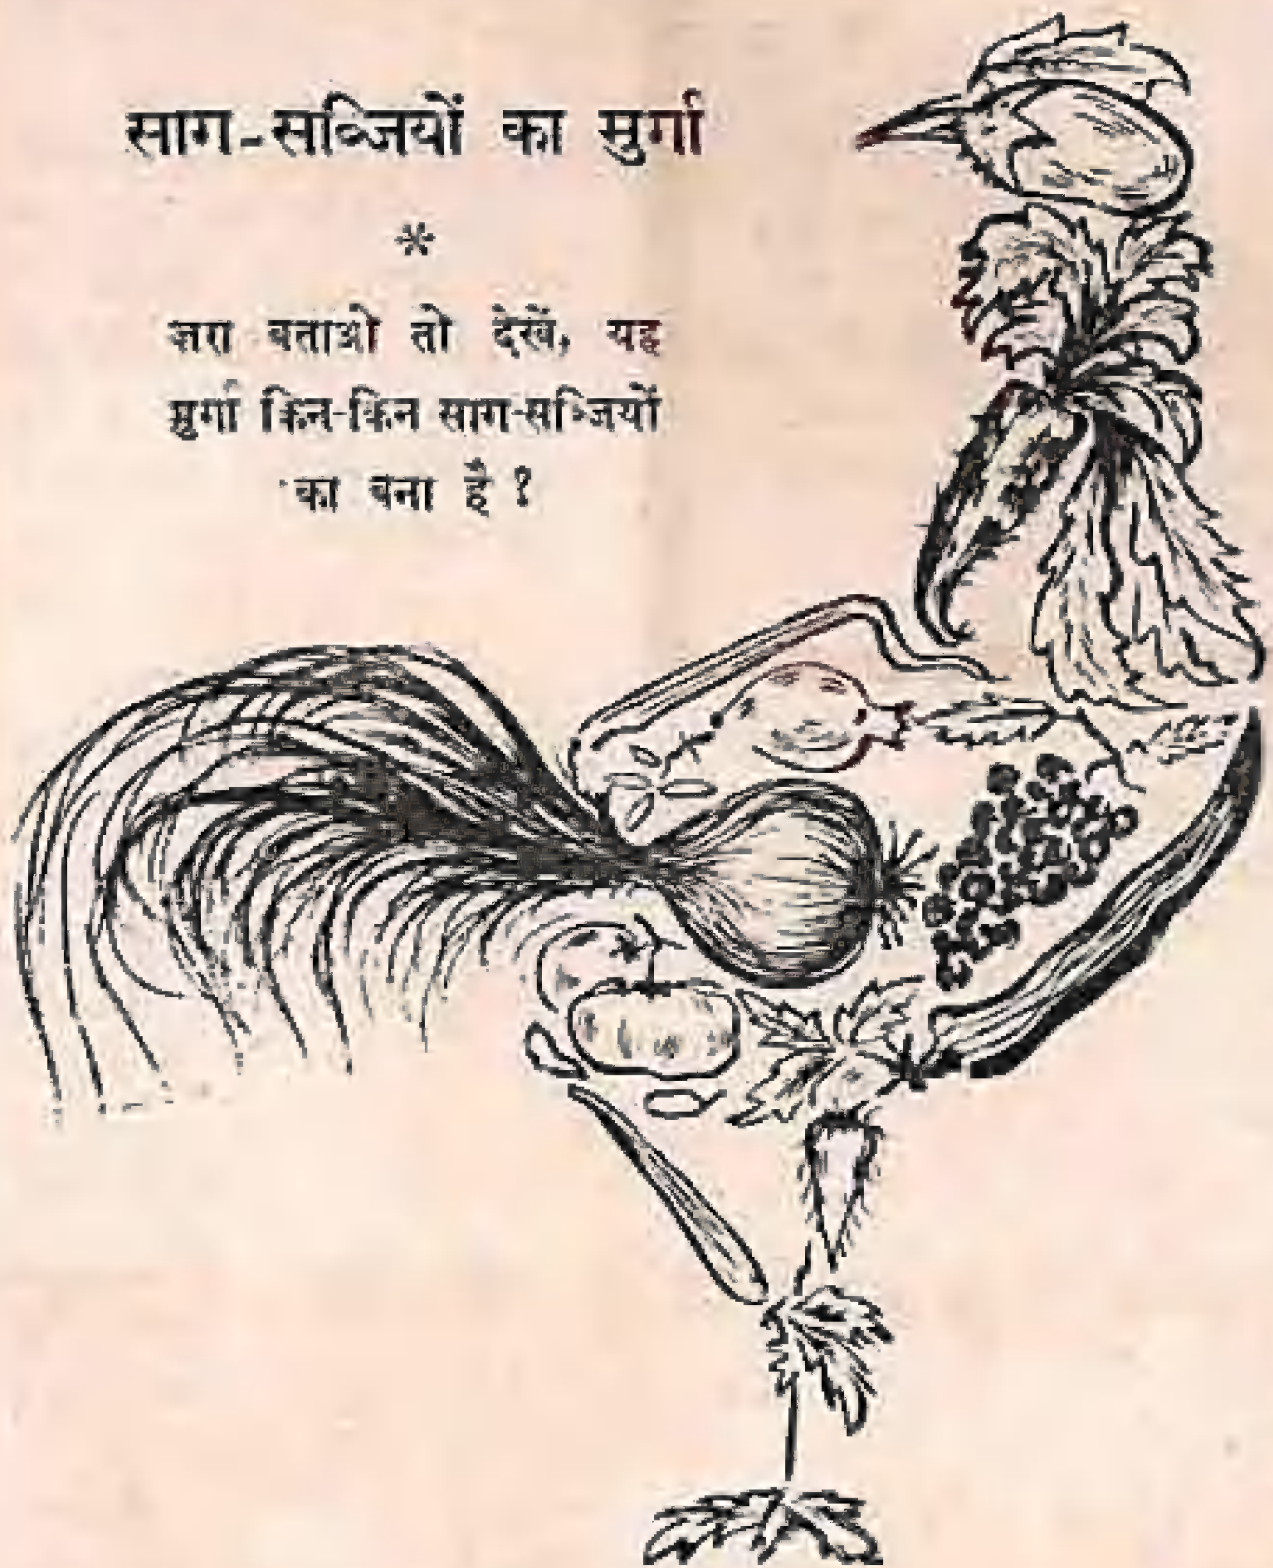 साग-सब्जियों का मुर्गा
*
ज़रा बताओ तो देखें, यह
मुर्गा किन-किन साग-सब्जियों
का बना है ?